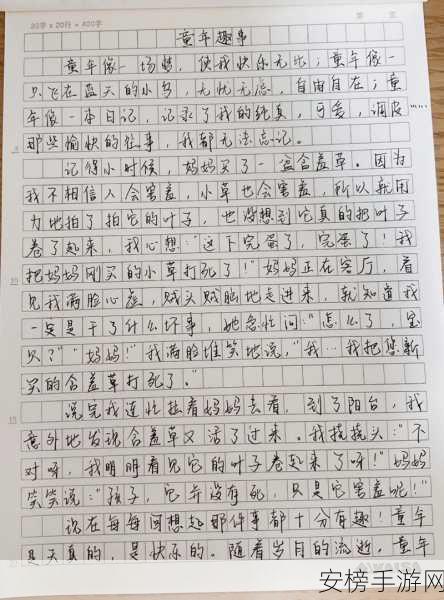 20字×20行=400字
第 页
童年趣事
童年像一场梦，使我快乐无比；童年像一
只飞在蓝天的小鸟，无忧无虑，自由自在；童
年像一本日记，记录了我的纯真，可爱，调皮……
那些愉快的往事，我都无法忘记。
记得小时候，妈妈买了一盆含羞草。因为
我不相信人会害羞，小草也会害羞，所以就用
力地拍了拍它的叶子，也没想到它真的把叶子
卷了起来，我心想："这下完蛋了，完蛋了！我
把妈妈刚买的小草打死了！"妈妈正在客厅，看
见我满脸心虚，贼头贼脑地走进来，就知道我
一定是干了什么坏事，她急忙问："怎么了，宝
贝？""妈妈！"我满脸堆笑地说，"我…我把您新
买的含羞草打死了。"
说完我连忙拉着妈妈去看，到了阳台，我
意外地发现含羞草又活了过来。我挠挠头："不
对呀，我明明看见它的叶子卷起来了呀！"妈妈
笑笑说："孩子，它并没有死，只是它害羞呢！"
现在每每回想起那件事都十分有趣！童年
是天真的，是快乐的。随着岁月的流逝，童年
安榜手游网